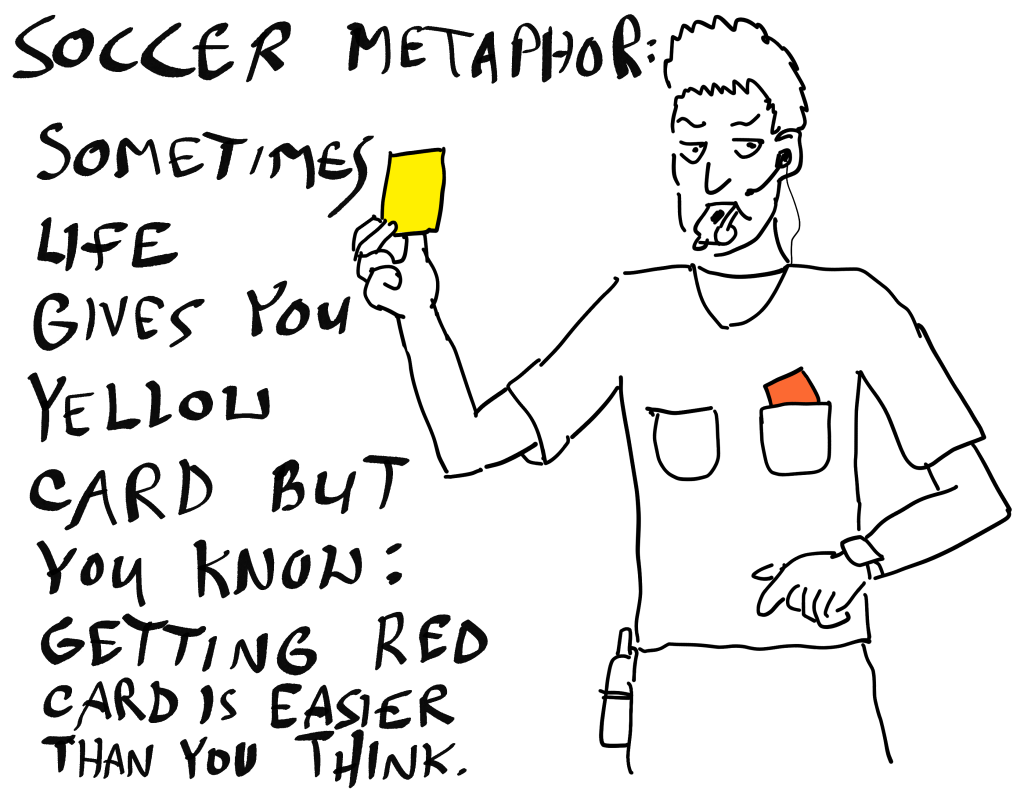 SOCCER METAPHOR:
SOMETIMES
LIFE
GIVES YOU
YELLOW
CARD BUT
YOU KNOW:
GETTING RED
CARD IS EASIER
THAN YOU THINK.